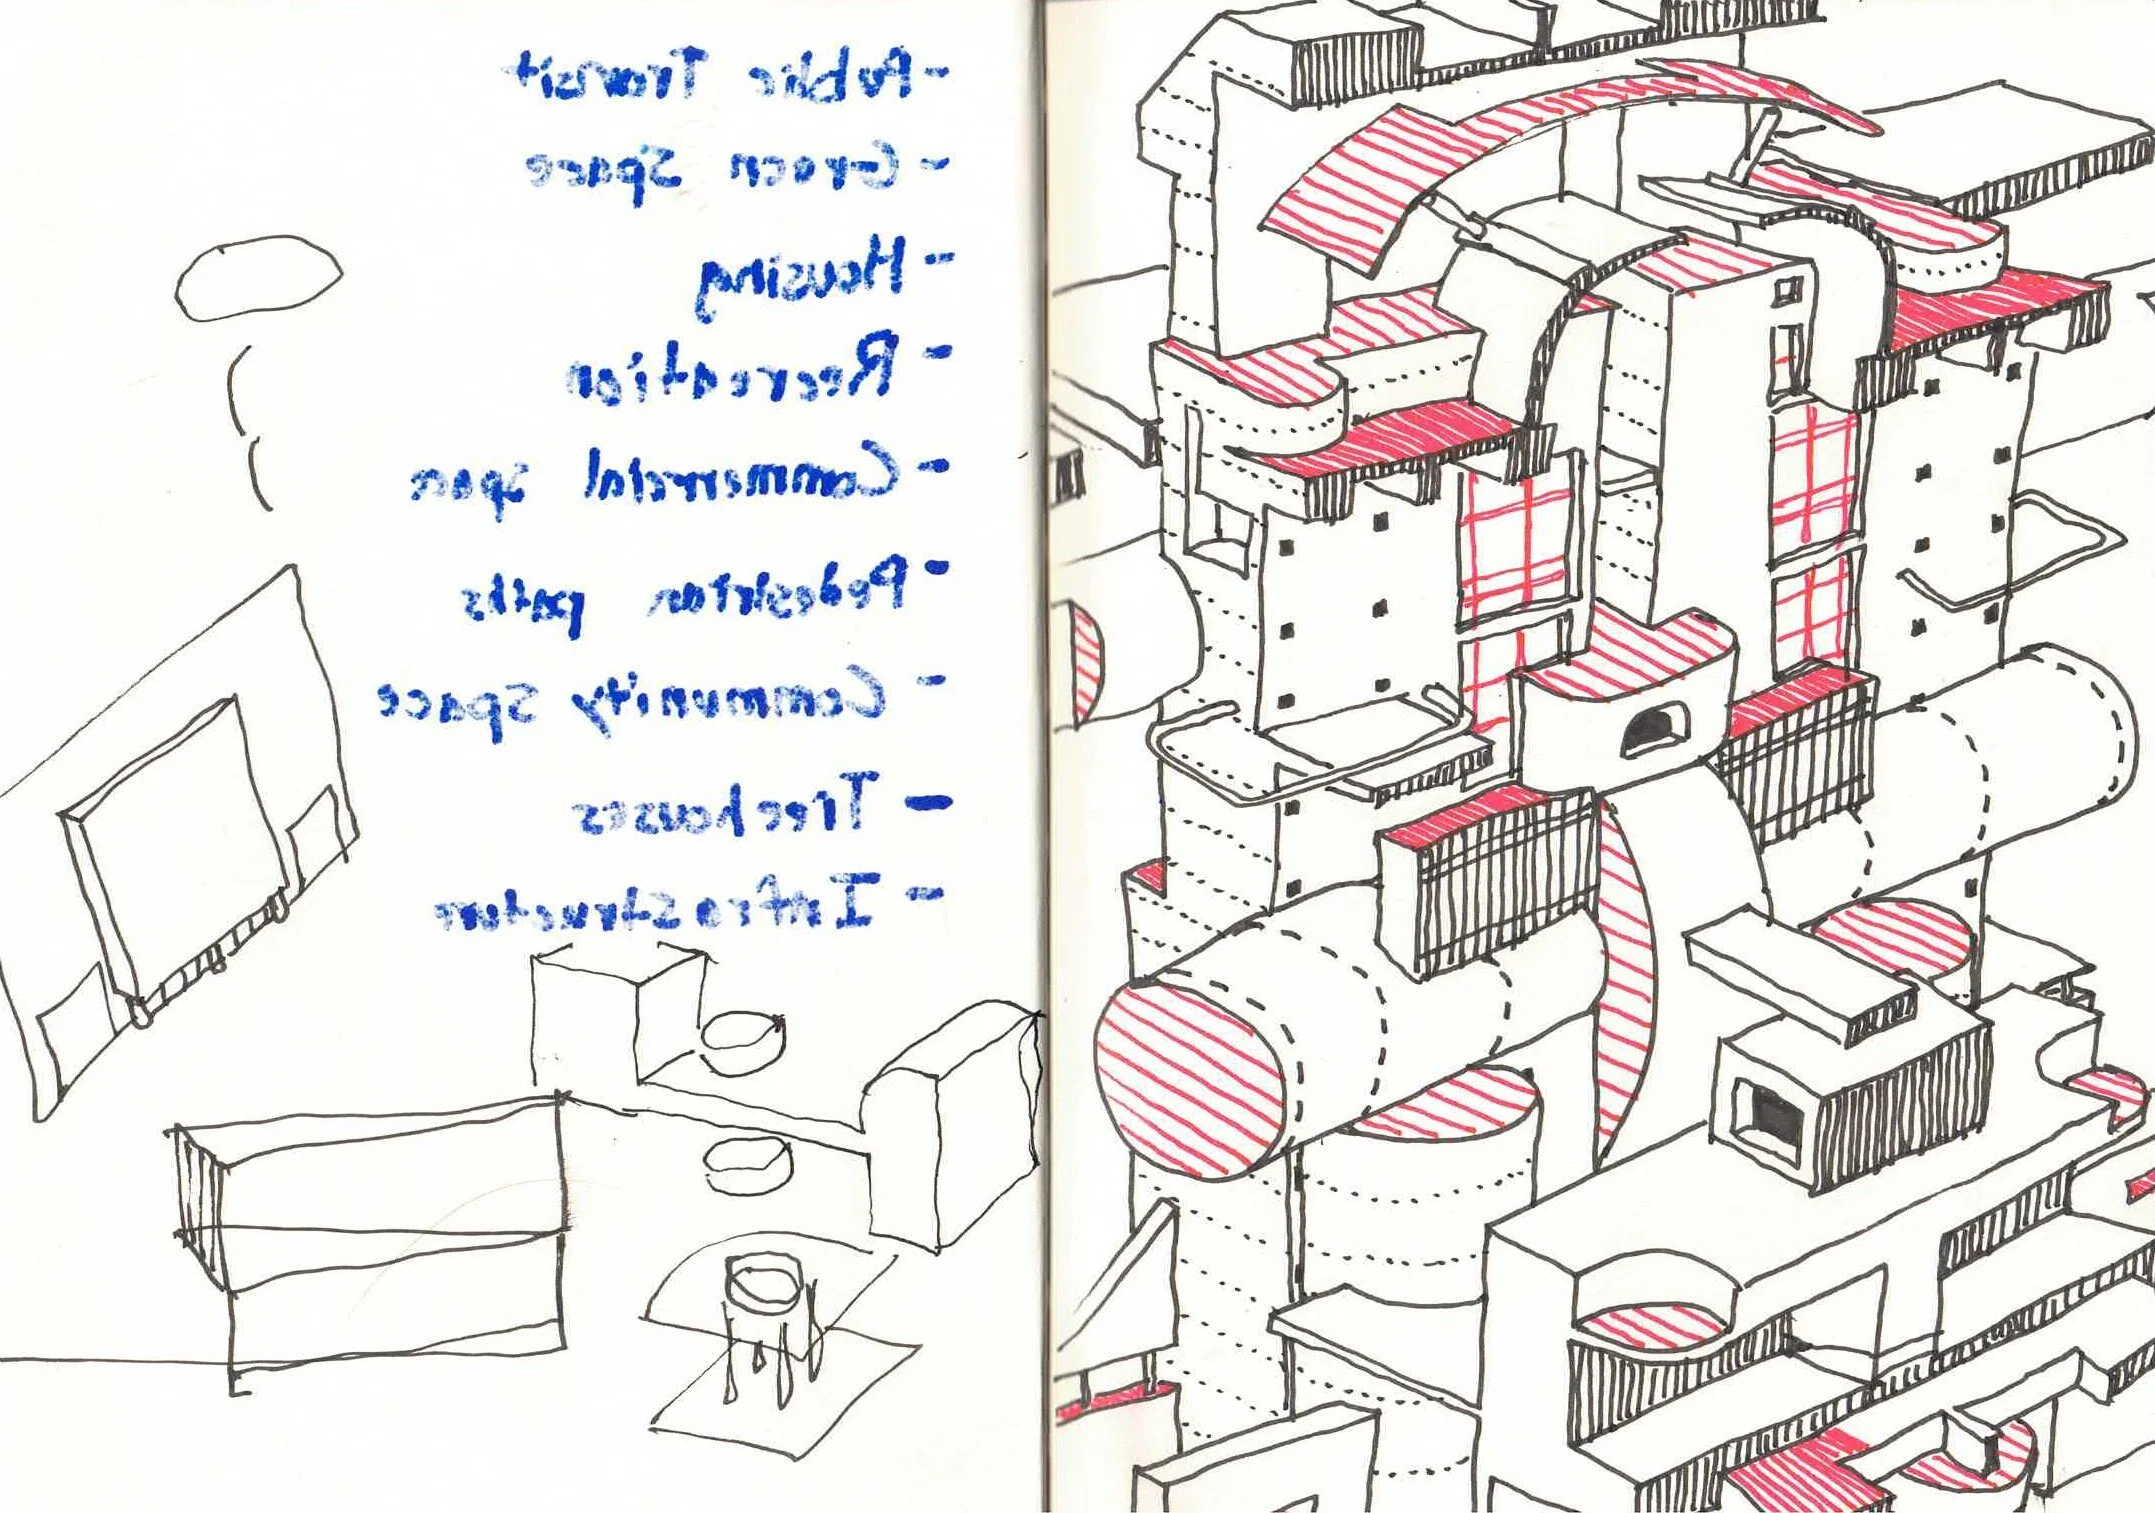 - Public Transit
- Green Space
- Housing
- Recreation
- Commercial Space
- Pedestrian paths
- Community Space
- Treehouses
- Infrastructure